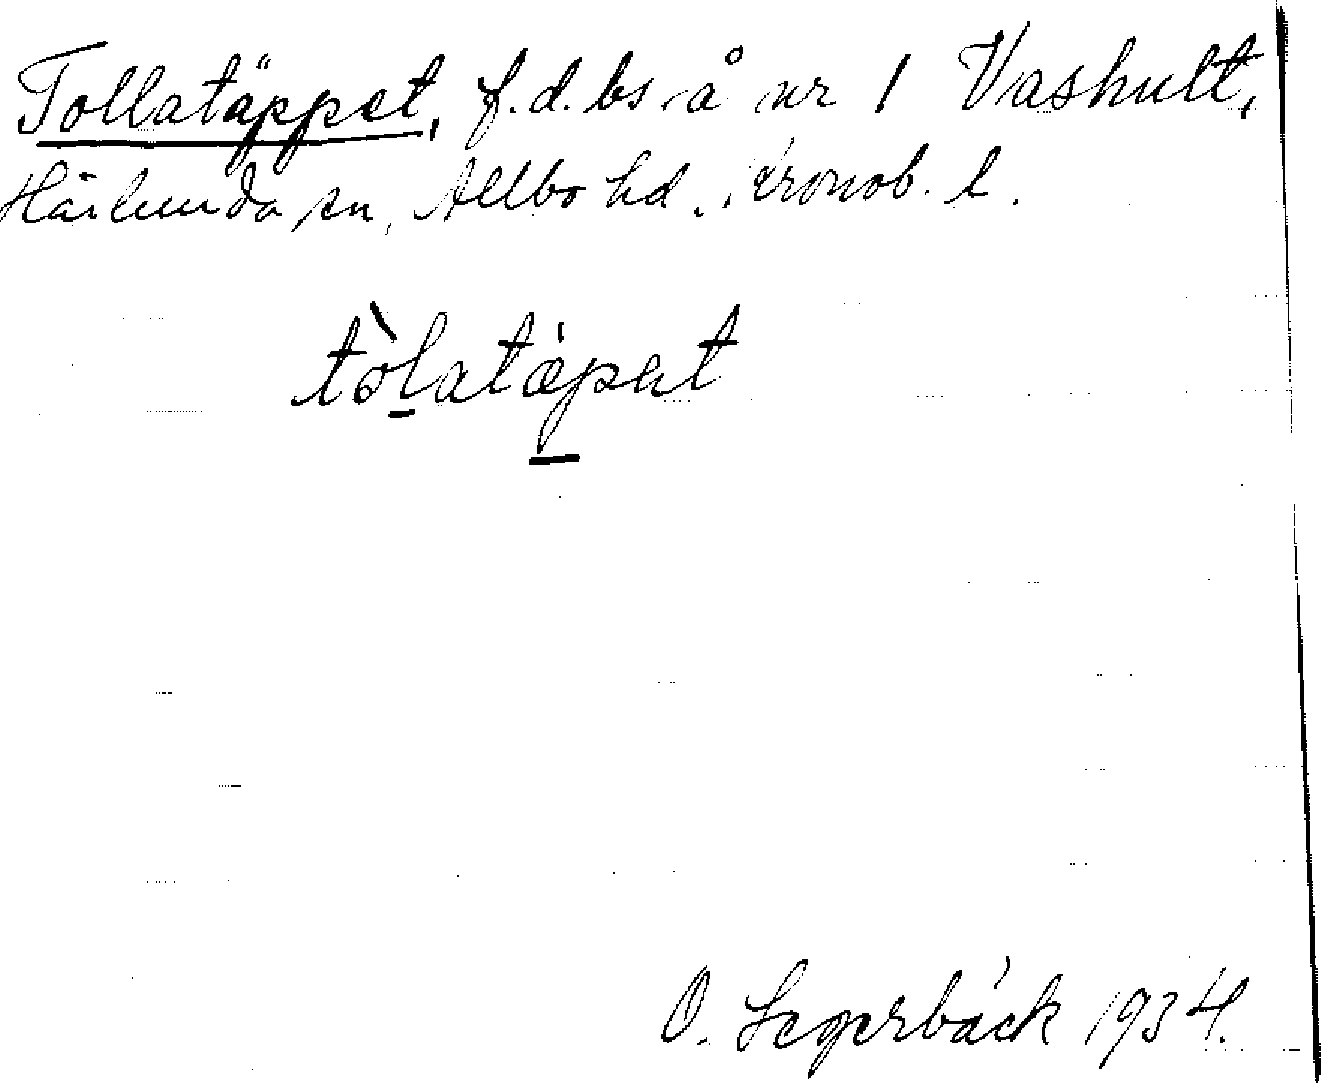 Tollatäppet, f.d. bs. å nr 1 Vashult,
Härlunda sn, Allbo hd., Kronob. l.
tòlatǽpət
O. Segerbäck 1934.